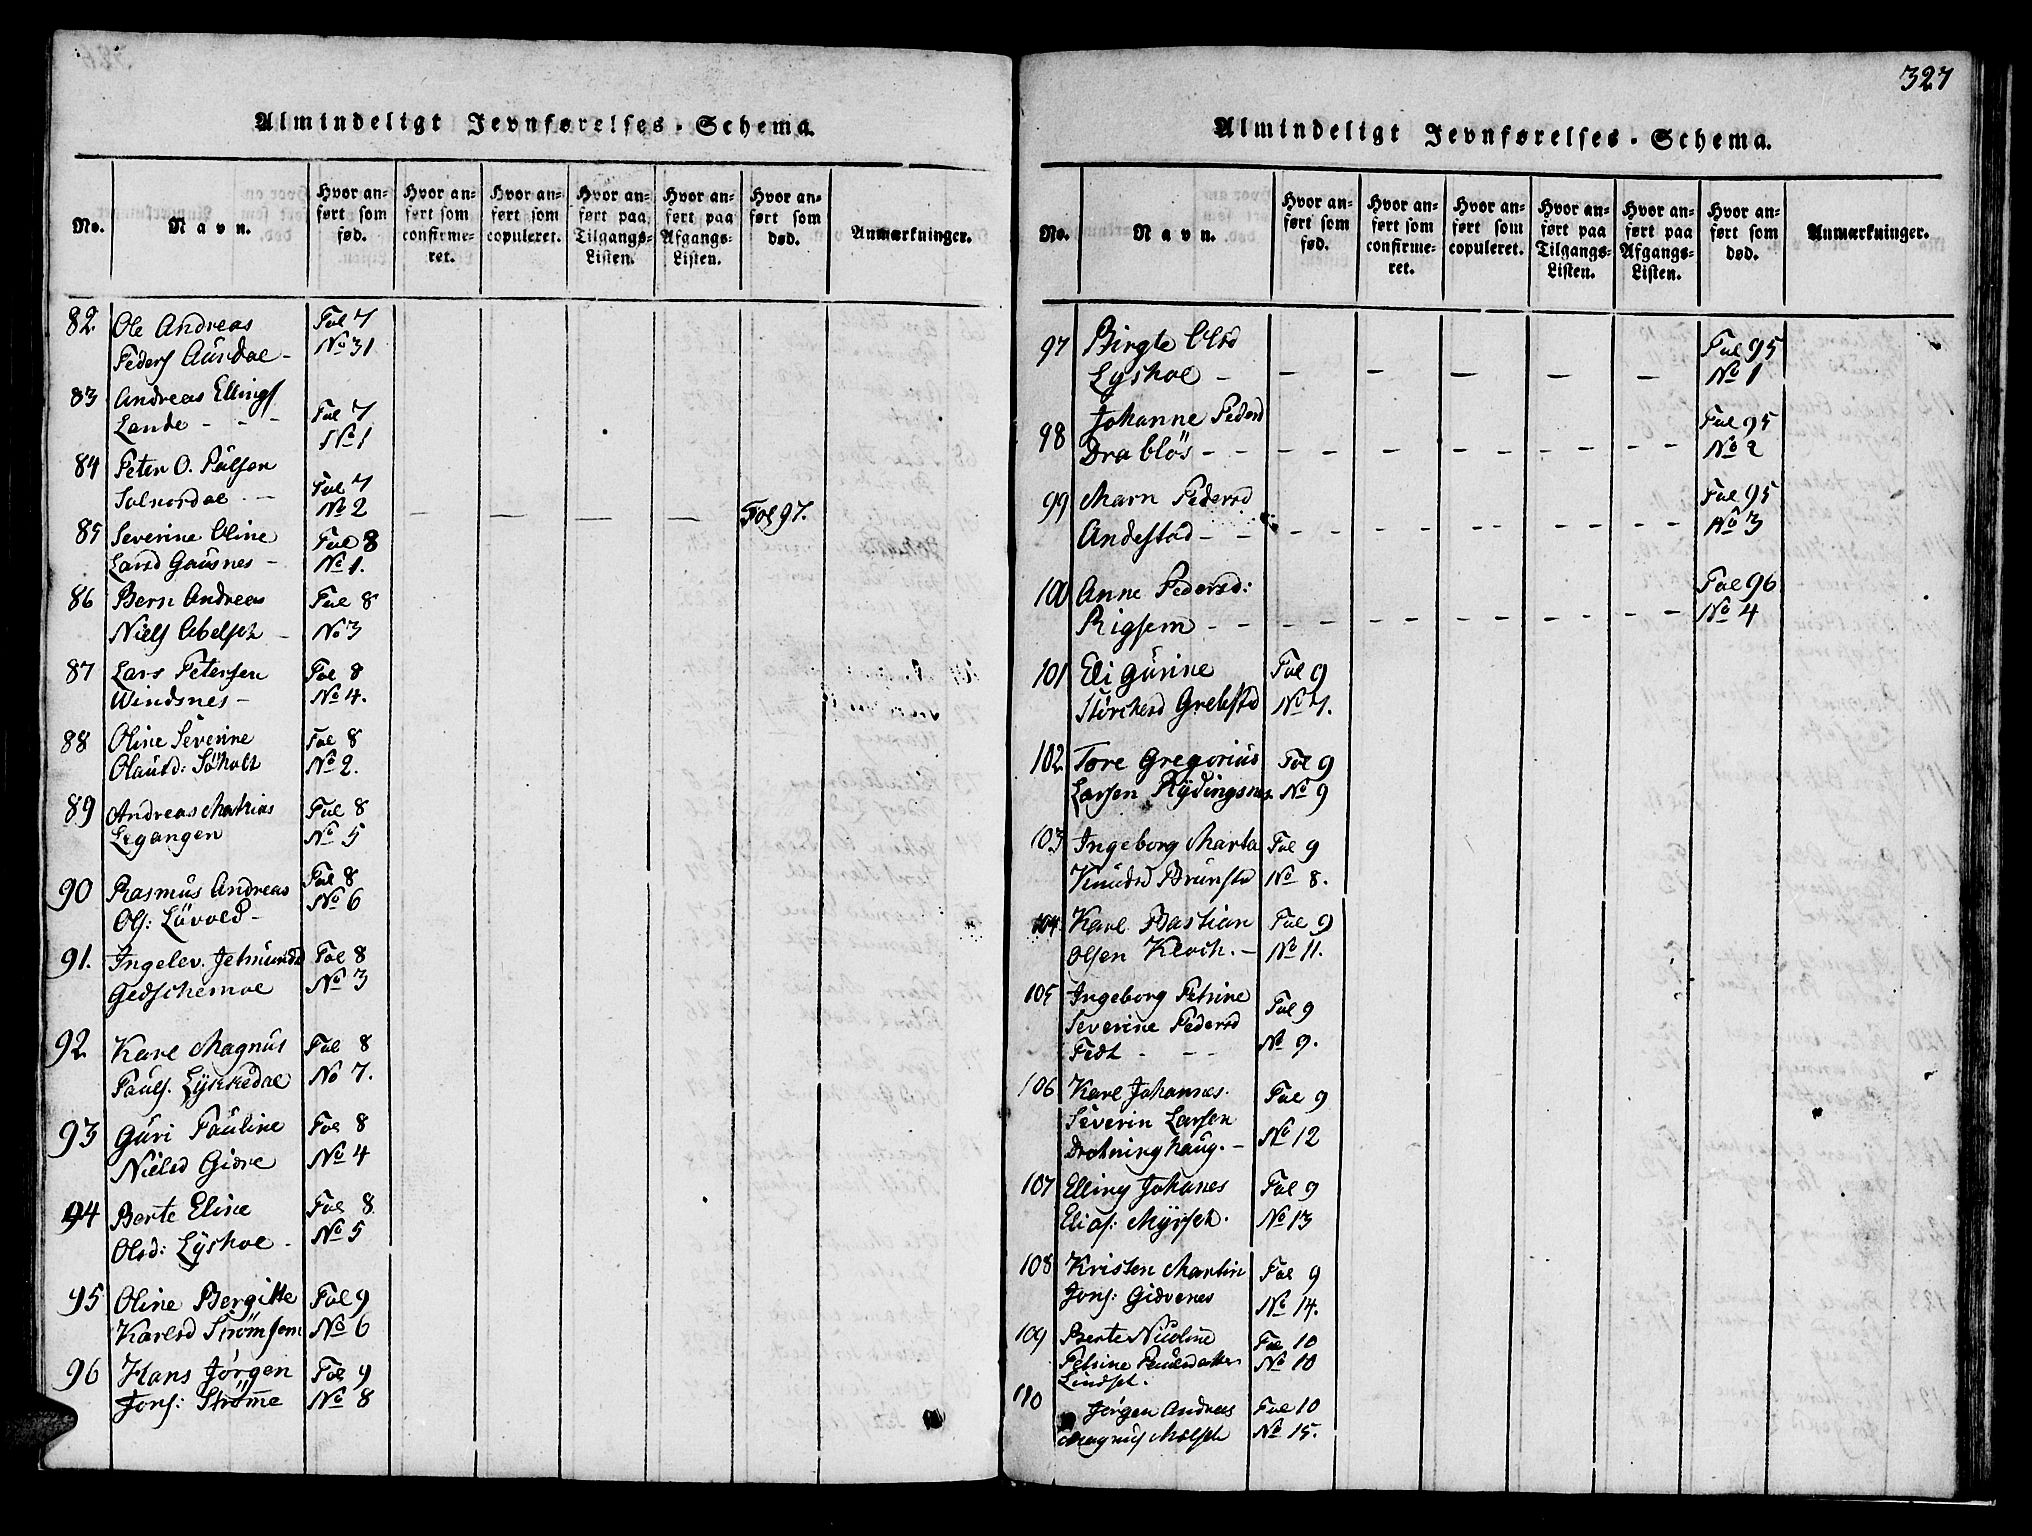 327
Almindeligt Jevnførelses-Schema.
No.
Navn.
Hvor anført som fød.
Hvor anført som confirmeret.
Hvor anført som copuleret.
Hvor anført paa Tilgangs-Listen.
Hvor anført paa Afgangs-Listen.
Hvor anført som død.
Anmærkninger.
82. Ole Andreas Fol 7
Peders Aursdal - No 31
83 Andreas Ellings
Lande - - - Fol 7
No 1
84 Peter O. Pülsen
Solnordal - - Fol 7
No 2 — — — — Fol 97.
85 Severine Oline Fol 8
Larsd Gausnes - No 1.
86 Bern Andreas Fol 8
Niels Abelset - No 3
87 Lars Petersen Fol 8
Windsnes - No 4.
88 Oline Severine Fol 8
Olausd: Söholt No 2.
89 Andreas Mathias Fol 8
Legangen No 5
90 Rasmus Andreas Fol 8
Ols: Lövold - No 6
91. Ingelev. Jetmundsd Fol 8
Gedschemoe No 3
92 Karl Magnus Fol 8
Pauls. Lykkedal No 7.
93 Guri Pauline Fol 8
Nielsd Gidre No 4
94 Berte Eline Fol 8
Olsd: Lyshol - No 5
95 Oline Bergitte Fol 9
Karlsd Strömsem No 6
96 Hans Jörgen Fol 9
Jons: Strömme No 8
Almindeligt Jevnførelses-Schema.
No.
Navn.
Hvor anført som fød.
Hvor anført som confirmeret.
Hvor anført som copuleret.
Hvor anført paa Tilgangs-Listen.
Hvor anført paa Afgangs-Listen.
Hvor anført som død.
Anmærkninger.
97 Birgte Olsd Fol 95
Lyshol - — — — — — No 1
98 Johanne Pedersd Fol 95
Drablös - - - - - - - No 2
99 Marn Pedersd Fol 95
Andestad - - - - - - - No 3
100 Anne Pedersd: Fol 96
Rigsem - - - - - - - No 4
101 Eli Gurine Fol 9
Störchersd Grebstd No 7.
102 Tore Gregorius Fol 9
Larsen Rydingsnes. No 9
103 Ingeborg Marta Fol 9
Knudsd Brunstd No 8.
104 Karl Bastian Fol 9
Olsen Kloch. - No 11.
105 Ingeborg Petrine Fol 9
Severine Pedersd
Fedt - - - No 9.
106 Karl Johannes. Fol 9
Severin Larsen
Drotninghaug. - No 12
107 Elling Johanes Fol 9
Elias: Myrset. No 13
108 Kristen Martin Fol 9
Jons: Gidvenes No 14.
109 Berte Nicoline Fol 10
Petrine No 10
Lindset.
110 Jörgen Andreas Fol 10
Magnus Molset No 15.